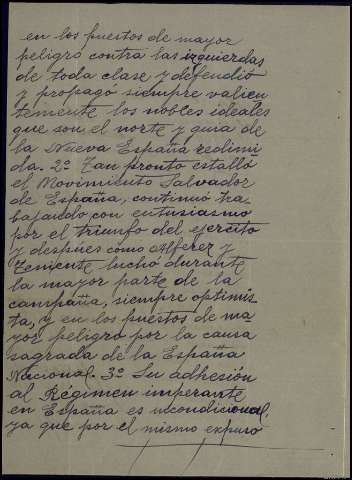 en los puestos de mayor
peligro contra las izquierdas
de toda clase y defendió
y propagó siempre valien
temente los nobles ideales
que son el norte y guia de
la Nueva España redimi
da. 2º Tan pronto estalló
el Movimiento Salvador
de España, continuó tra
bajando con entusiasmo
por el triunfo del ejercito
y despues como Alferez y
Teniente luchó durante
la mayor parte de la
campaña, siempre optimis
ta, y en los puestos de ma
yor peligro por la causa
sagrada de la España
Nacional. 3º Su adhesión
al Régimen imperante
en España es incondicional,
ya que por el mismo expuso